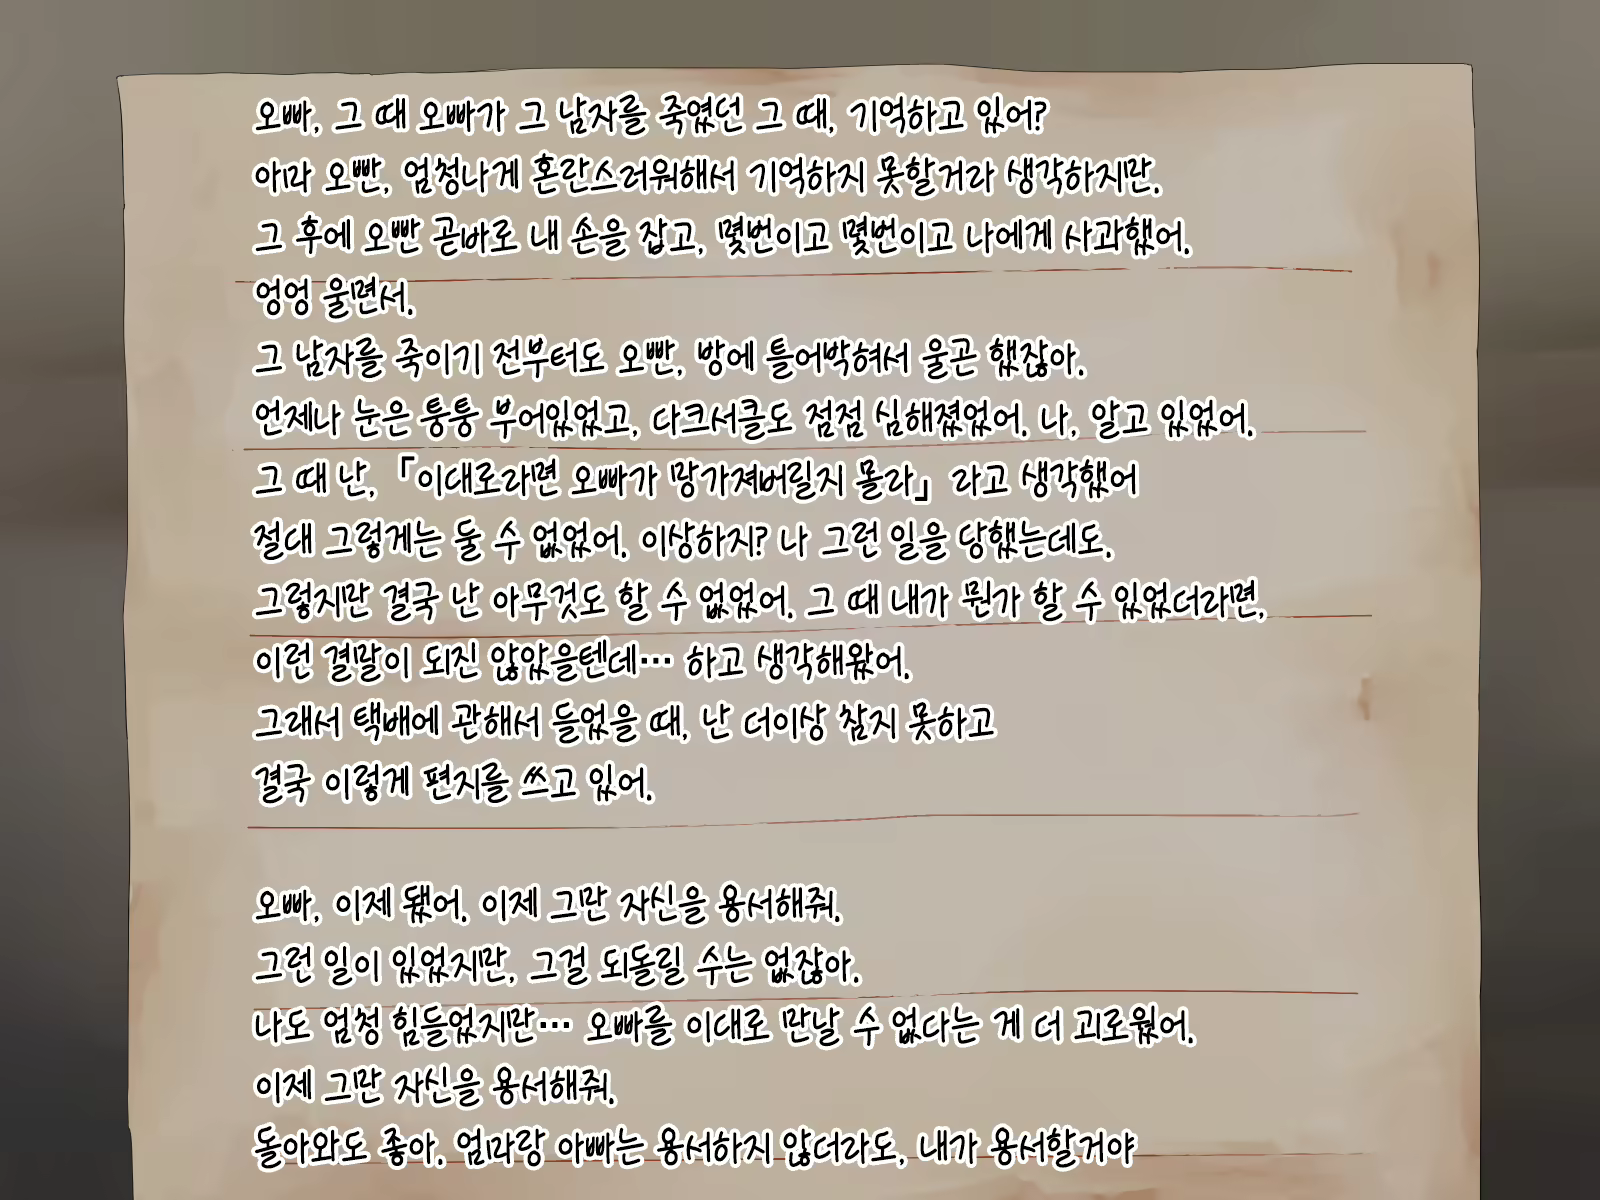 오빠, 그 때 오빠가 그 남자를 죽였던 그 때, 기억하고 있어?
아마 오빤, 엄청나게 혼란스러워해서 기억하지 못할거라 생각하지만.
그 후에 오빤 곧바로 내 손을 잡고, 몇번이고 몇번이고 나에게 사과했어.
엉엉 울면서.
그 남자를 죽이기 전부터도 오빤, 방에 틀어박혀서 울곤 했잖아.
언제나 눈은 퉁퉁 부어있었고, 다크서클도 점점 심해졌었어. 나, 알고 있었어.
그 때 난, 「이대로라면 오빠가 망가져버릴지 몰라」 라고 생각했어
절대 그렇게는 둘 수 없었어. 이상하지? 나 그런 일을 당했는데도.
그렇지만 결국 난 아무것도 할 수 없었어. 그 때 내가 뭔가 할 수 있었더라면,
이런 결말이 되진 않았을텐데… 하고 생각해왔어.
그래서 택배에 관해서 들었을 때, 난 더이상 참지 못하고
결국 이렇게 편지를 쓰고 있어.
오빠, 이제 됐어. 이제 그만 자신을 용서해줘.
그런 일이 있었지만, 그걸 되돌릴 수는 없잖아.
나도 엄청 힘들었지만… 오빠를 이대로 만날 수 없다는 게 더 괴로웠어.
이제 그만 자신을 용서해줘.
돌아와도 좋아. 엄마랑 아빠는 용서하지 않더라도, 내가 용서할거야